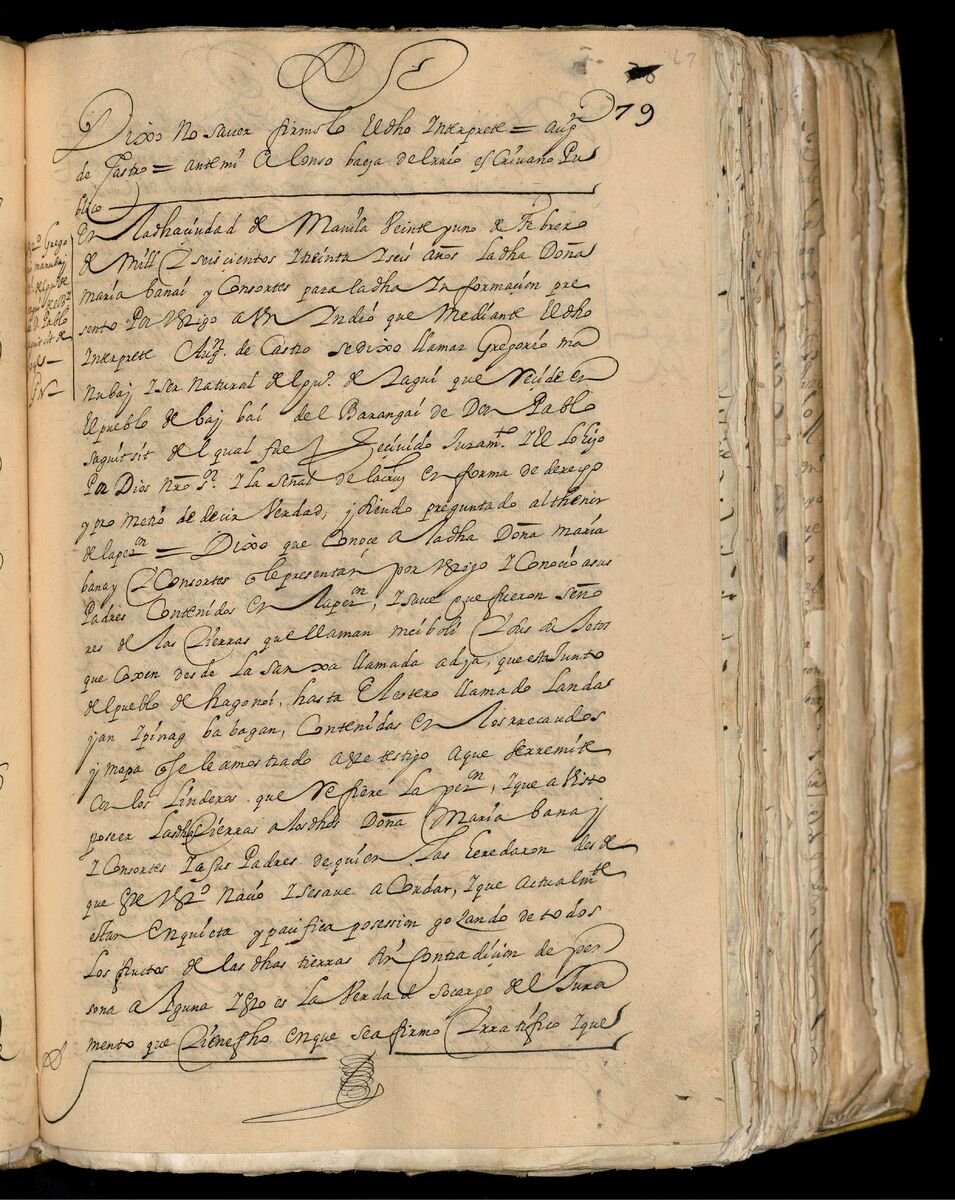 79
Dixo no saver firmolo el dho Interprete = Augn
de Castro = ante mi Alonso baeza del rrio esCrivano Pu
blico
En la dha ciudad de Manila Veinte y uno de Febrero
de Mill y seiscientos y treinta y seis años la dha Doña
maria banai y Consortes para la dha Informacion pre
sento Por testigo a Un Indio que Mediante el dho
Interprete Augn. de Castro se dixo llamar Gregorio ma
nubay y ser Natural del pu.o de Tagui que Reside en
el pueblo de bay bai del Barangai de Don Pablo
saguitsit del qual fue Recivido Juramto y el lo hizo
Por Dios Nro sr. y la señal de la cruz en forma de derecho
y prometio de decir Verdad, y siendo preguntado al thenor
de la petn = Dixo que conoce a la dha Doña maria
banay y Consortes q le presentan por testigo y Conocio a sus
Padres Contenidos en la petn, y save que fueron seño
res de las tierras que llaman meiboli
que Coxen desde la sanxa llamada adya, que esta Junto
del pueblo de hagonoi, hasta el estero llamado Landas
yan ypinag babagan, Contenidas en los rrecaudos
y mapa q se le a mostrado a este testigo a que se rremite
Con los Linderos que Refiere la petn, y que a Visto
poseer las dhas tierras a los dhos Doña Maria banay
y Consortes y a sus Padres de quien las heredaron desde
que este testigo Nacio y se save aCordar, y que actualmte
estan en quieta y pacifica posession gozando de todos
los fructos de las dhas tierras sin Contradicion de per
sona alguna y esto es la Verdad so cargo del Jura
mento que tiene fho en que se afirmo y rratifico y que